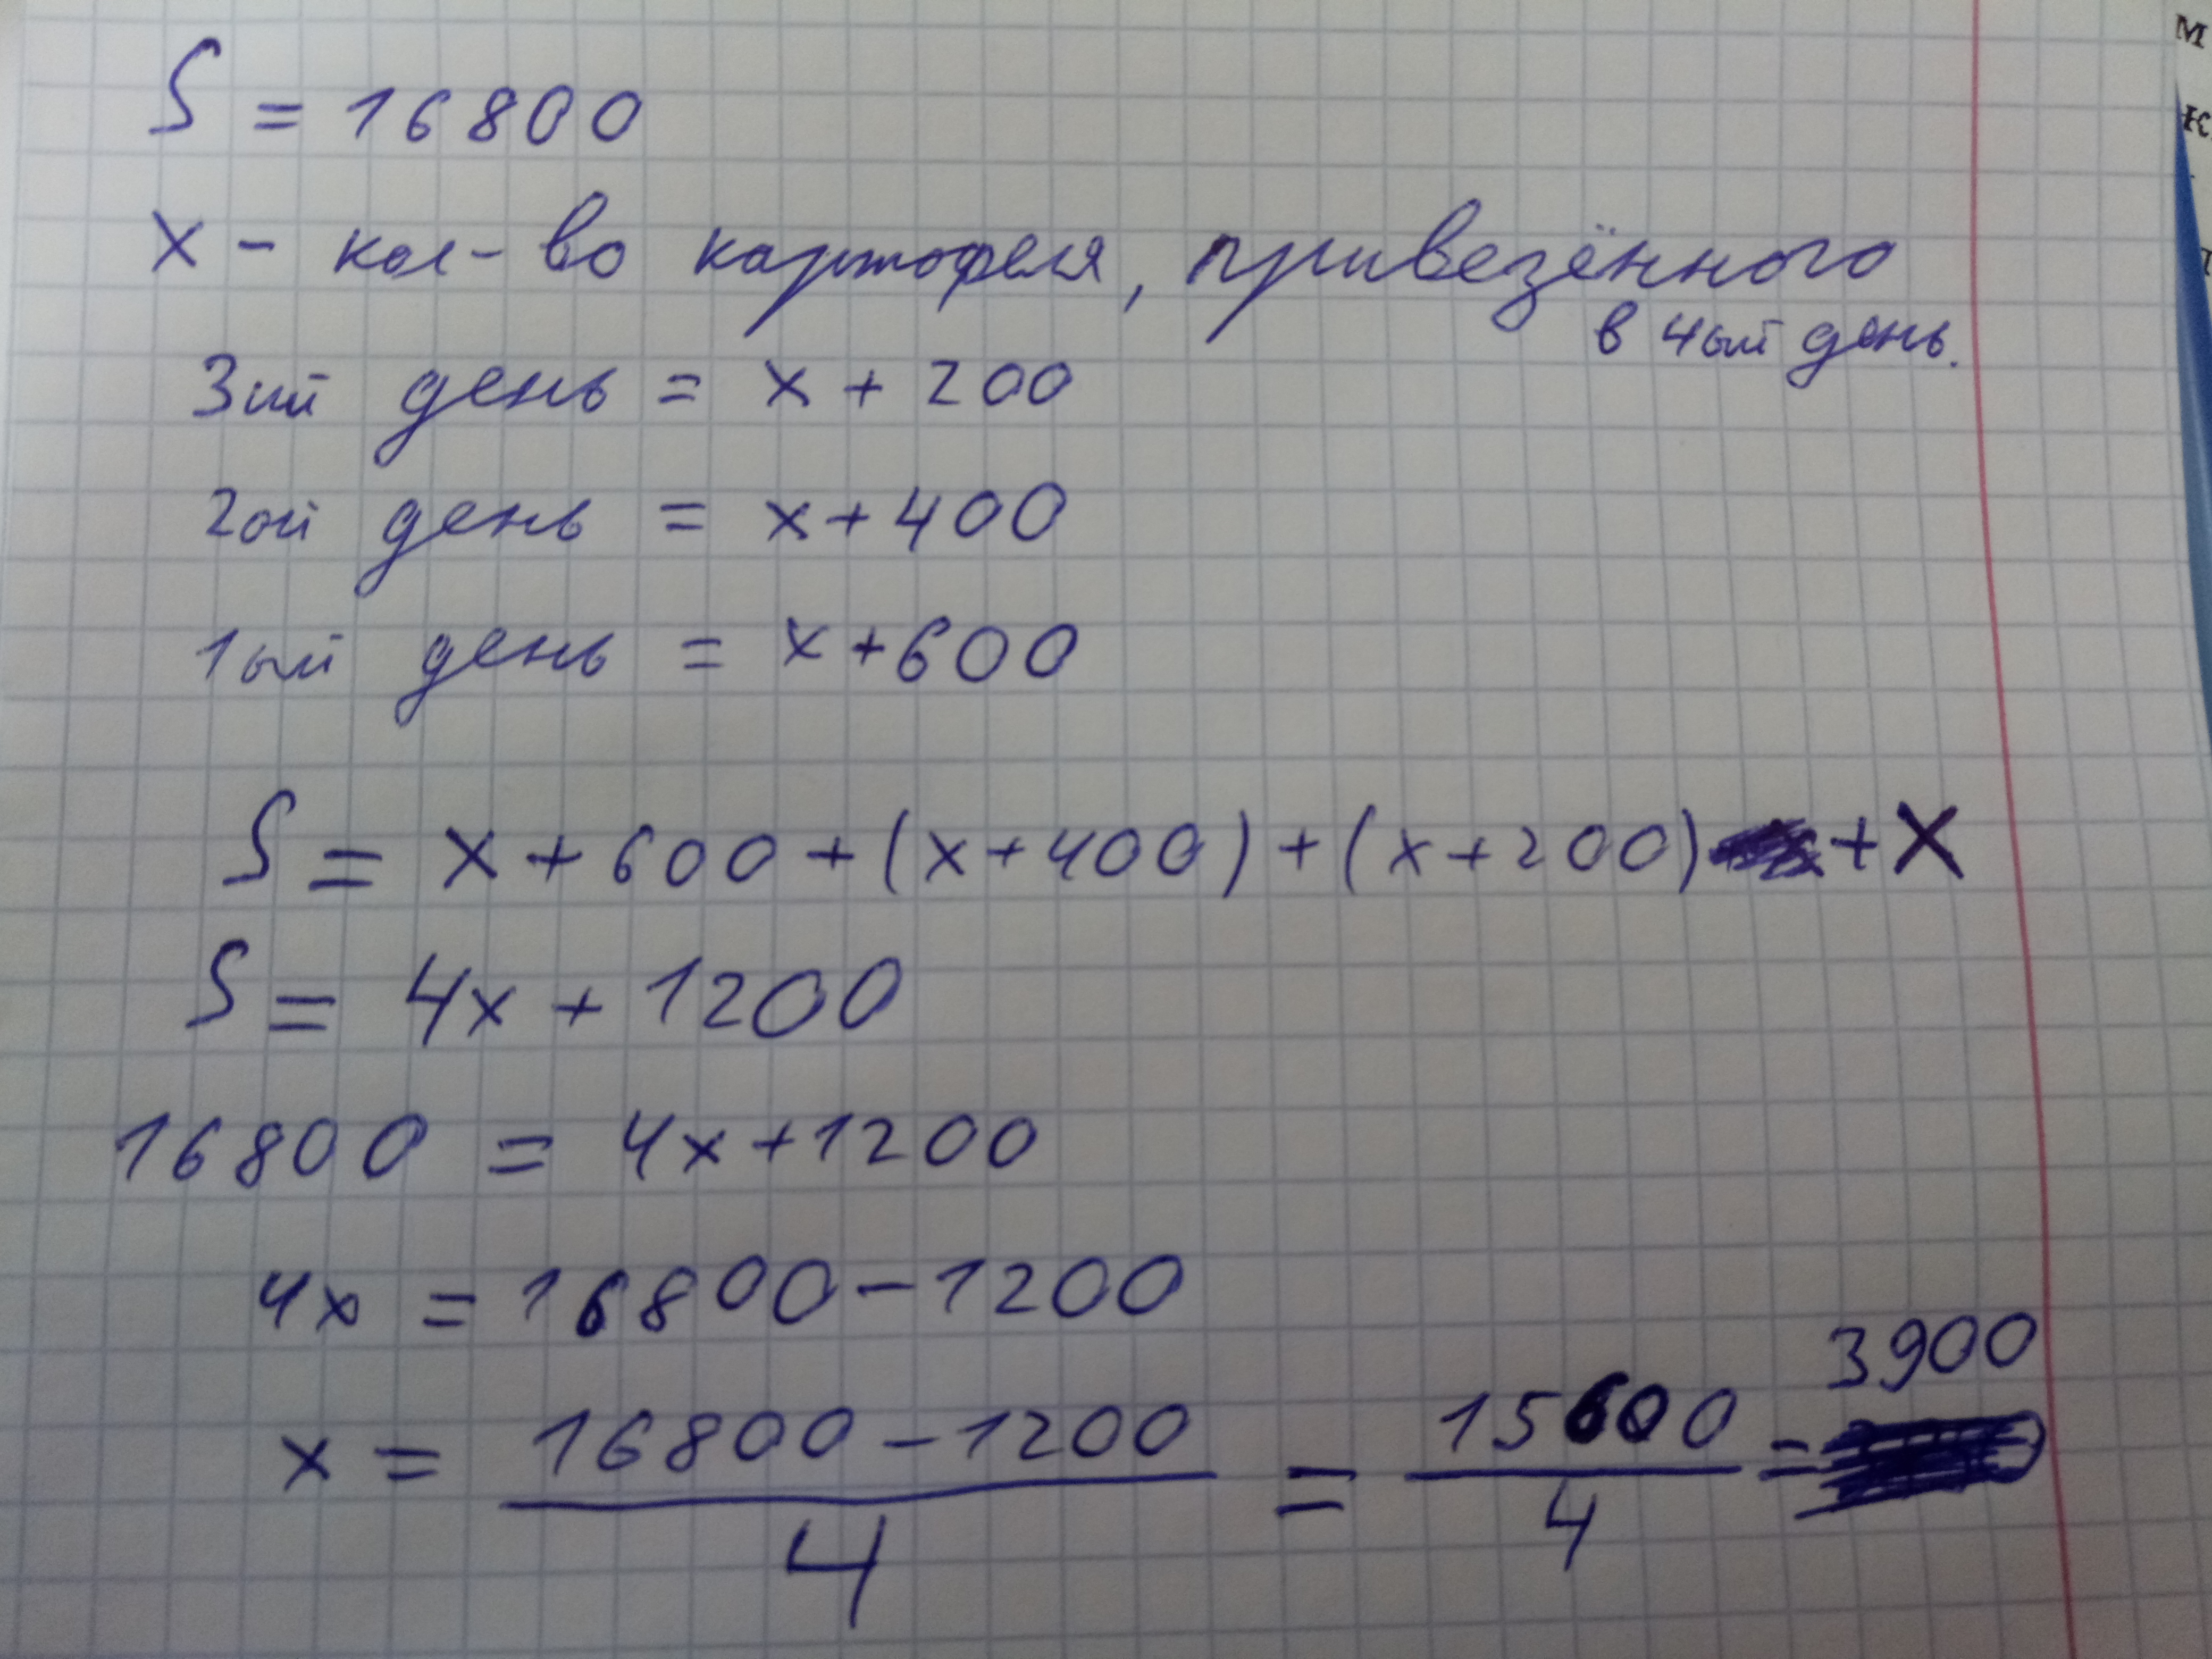 S = 16800
x - кол-во картофеля, привезённого
в 4ый день.
3ий день = x + 200
2ой день = x + 400
1ый день = x + 600
S = x + 600 + (x + 400) + (x + 200) + x
S = 4x + 1200
16800 = 4x + 1200
4x = 16800 - 1200
x = (16800 - 1200)/4 = 15600/4 = 3900